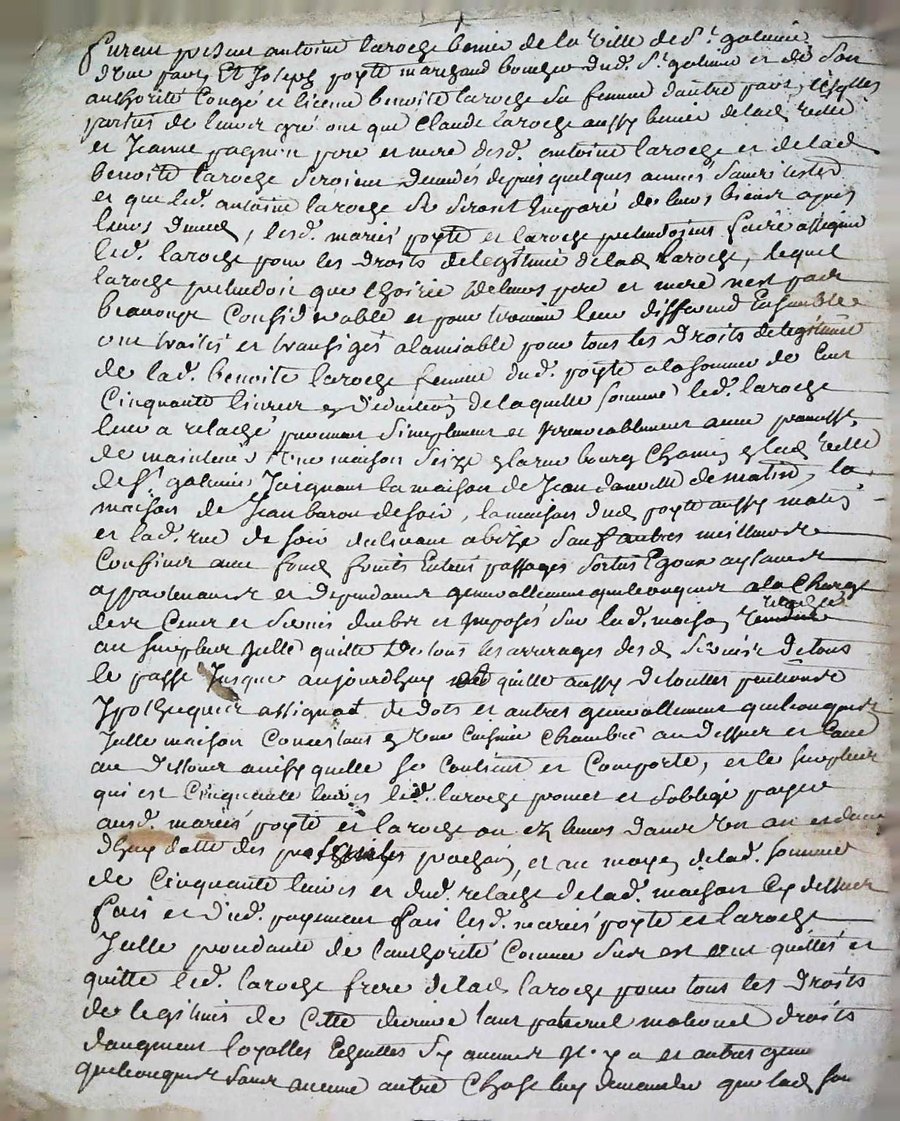 furent present antoine laroche benier de la ville de St galmier
d'une part, Et Joseph poyte marchand boucher dud. St galmier et de son
authorité Congé et licence benoite laroche sa femme dautre part, lesquelles
parties de leur gré ont que Claude laroche aussy benier de lad. ville
et Jeanne pagnon pere et mere desd. antoine laroche et de lad.
benoite laroche seroient decedes depuis quelques années sans tester
et que led. antoine laroche se seroit Emparé de leurs biens apres
leurs deces, lesd. mariés poyte et laroche pretendoient faire assigner
led. laroche pour les droits de legitime de lad. laroche, lequel
laroche pretendoit que lhoirie de leurs pere et mere nest pas
beaucoup Considerable et pour terminer leur differend Ensemble
ont traités et transigés alamiable pour tous les droits de legitime
de lad. benoite laroche femme dud. poyte ala somme de Cent
Cinquante livres en deduction de laquelle somme led. laroche
leur a relaché purement simplement et irrevocablement avec promesse
de maintenir Une maison size en la rue bourg Chanin en lad. ville
de St galmier Joignant la maison de Jean de matin, la
maison de Jean baron de soir, la maison dud. poyte aussy matin
et lad. rue de soir declinant a bize sauf autres meilleurs
Confins avec fond fruits Entrées passages sorties Egoux aysances
appartenances et dependances generallement quelconques ala Charge
des Cens et servis deubs et imposés sur lad. maison relachée
au surplus Jcelle quitte de tous les arrerages desd. servis de tout
le passé Jusque aujourdhuy quitte aussy de touttes pentions
Jpotheques assignat de dots et autres generallement quelconques
Jcelle maison Consistant en une Cuisine Chambre au dessus et Cave
au dessous ainsy quelle se Contient et Comporte, et le surplus
qui est Cinquante livres led. laroche promet et soblige payer
ausd. mariés poyte et laroche ou ez leurs dans Un an
dhuy datte des presentes prochain, et au moyen de lad. somme
de Cinquante livres et dud. relache de lad. maison Cy dessus
fait et dud. payement fait lesd. mariés poyte et laroche
Jcelle procedante de lauthorité Comme dessus est ont quittés et
quitte led. laroche frere de lad. laroche pour tous les droits
de legitimes de Cette derniere tant paternel maternel droits
daugment loyalles Echuttes sy aucunes Jl y a et autres
quelconques sans aucune autre Chose luy demander que lad. som